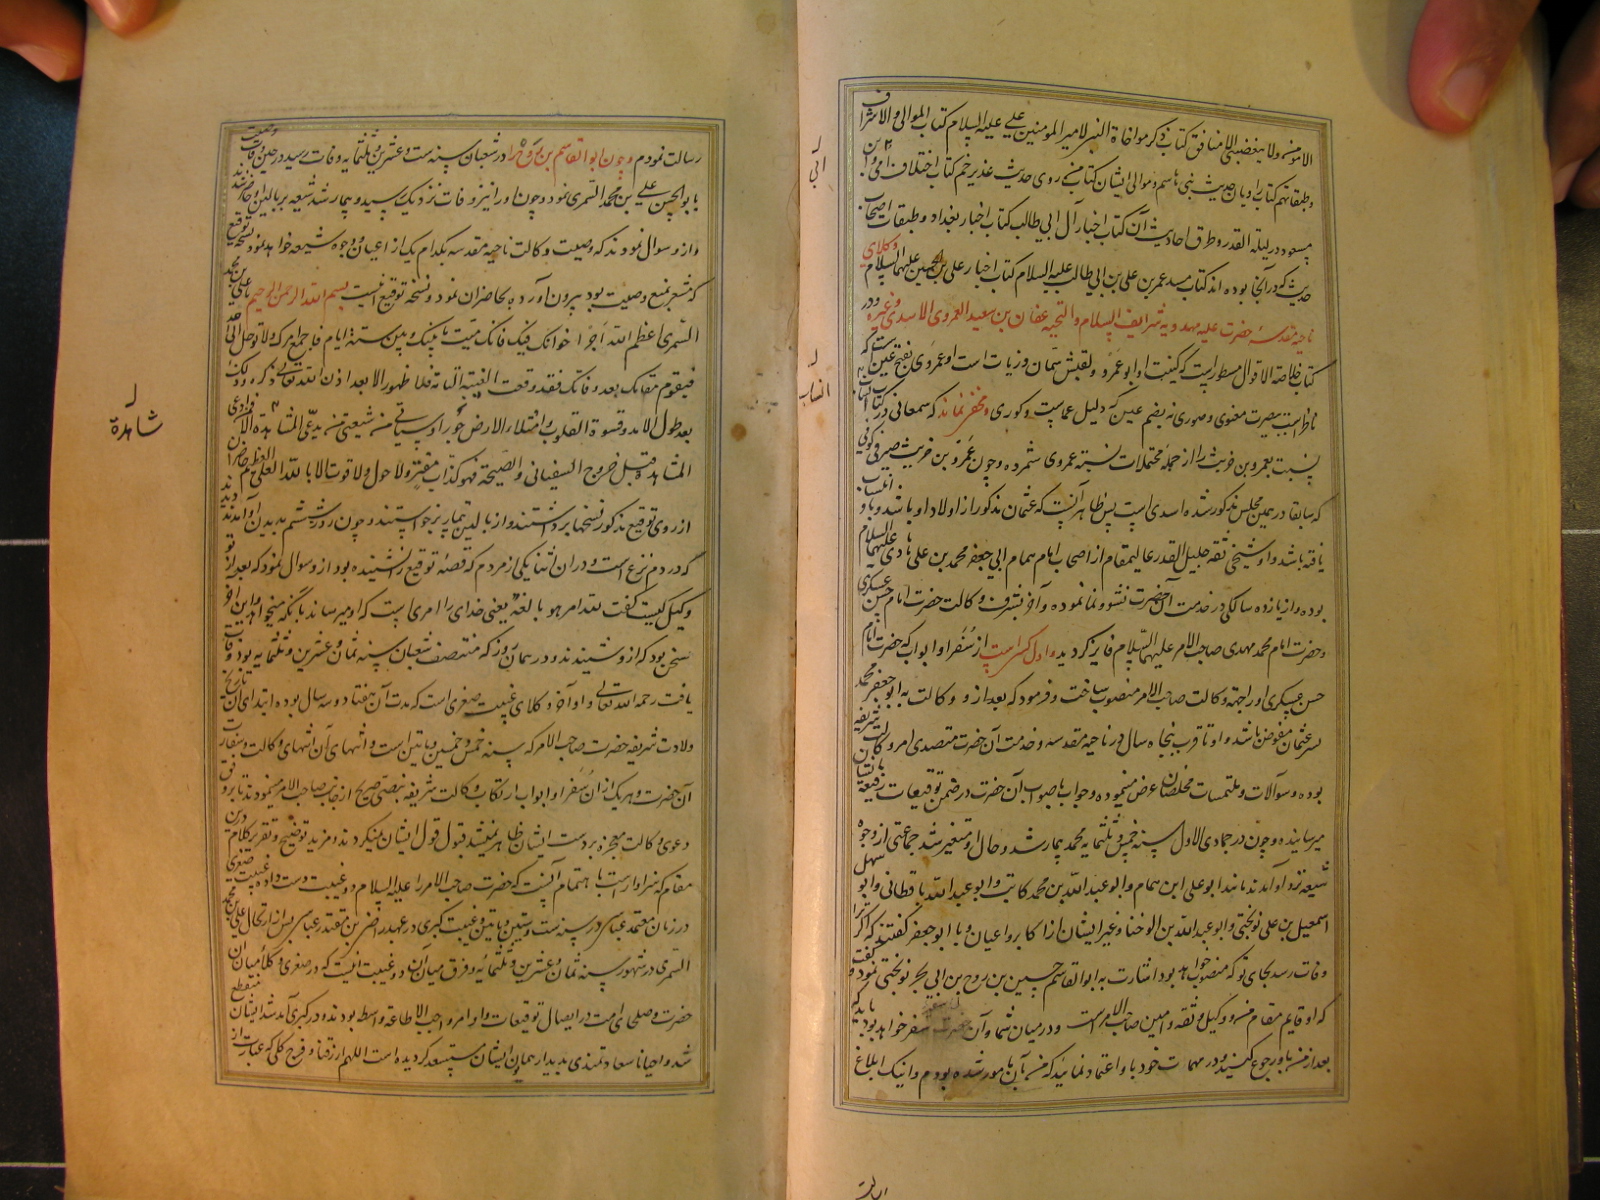 الا مؤمن ولا یبغضنی الا منافق کتاب ذکر مواخاة النبی لامیر المومنین علی علیه السلام کتاب الموالی والاشراف
وطبقاتهم کتاب راویان حدیث بنی هاشم و موالی ایشان کتاب من روی حدیث غدیر خم کتاب اختلاف ابی و ابن
مسعود در لیلة القدر و طرق احادیث آن کتاب اخبار آل ابی طالب کتاب اخبار بغداد و طبقات اصحاب
حدیث که در آنجا بوده اند کتاب مسند عمر بن علی بن ابی طالب علیه السلام کتاب اخبار علی بن الحسین علیهما السلام وکلای
ناحیه مقدسهٔ حضرت علیه مهدویه شرایف السلام والتحیه عثمان بن سعید العمروی الاسدی وغیره ودر
کتاب خلاصة الاقوال مسطور است که کنیت او ابو عمرو و لقبش سمان و زیات است و عمروی بفتح عین است که
ناظر است ببصیرت معنوی و صوری نه بضم عین که دلیل عماست و کوری ومخفی نماند که سمعانی در کتاب انساب
نسبت بعمرو بن حریث را از جمله محتملات نسبت عمروی شمرده و چون عمرو بن حریث صیرفی کوفی
که سابقا درین مجلس مذکور شده اسدی است پس ظاهر آنست که عثمان مذکور از اولاد او باشد و باو انتساب
یافته باشد و او شیخی ثقه جلیل القدر عالیمقام از اصحاب امام همام ابی جعفر محمد بن علی هادی علیهما السلام
بوده و از یازده سالکی در خدمت آن حضرت نشو و نما نموده و آخر بشرف وکالت حضرت امام حسن عسکری
و حضرت امام محمد مهدی صاحب الامر علیهما السلام فایز گردیده و اول کسی است از سفرا و ابواب که حضرت امام
حسن عسکری او را جهة وکالت صاحب الامر منصوب ساخت و فرمود که بعد از و وکالت به ابو جعفر محمد
پسر عثمان مفوض باشد و او تا قرب پنجاه سال در ناحیه مقدسه و خدمت آن حضرت متصدی امر وکالت شریفه
بوده و سوالات و ملتمسات مخلصان عرض مینموده و جواب باصواب آن حضرت در ضمن توقیعات رفیعه بایشان
میرسانیده و چون در جمادی الاول سنه خمس و ثلثمایه محمد بیمار شد و حال او متغیر شد جماعتی از وجوه
شیعه نزد او آمدند مانند ابو علی ابن همام و ابو عبد الله بن محمد کاتب و ابو عبد الله باقطانی و ابو سهل
اسمعیل بن علی نوبختی و ابو عبد الله بن الوجنا و غیر ایشان از اکابر و اعیان و با ابو جعفر گفتند که اگر ترا
وفات رسد بجای تو که منصوب خواهد بود اشارت به ابو القاسم حسین بن روح بن ابی بحر نوبختی نمود و گفت
که او قایم مقام منست و وکیل و ثقه و امین صاحب الامر است و در میان شما و آن حضرت سفیر خواهد بود باید که
بعد از من باو رجوع کنید و در مهمات خود باو اعتماد نمائید که من بآن مامور شده بودم و اینک ابلاغ
رسالت
ابی
انساب
رسالت نمودم و چون ابو القاسم بن روح را در شعبان سنه ست و عشرین و ثلثمایه وفات رسید در حین وفات وصیت
بابو الحسن علی بن محمد السمری نمود و چون او را نیز وفات نزدیک رسید و بیمار شد شیعه بر بالین او حاضر شدند
و از و سوال نمودند که وصیت وکالت ناحیه مقدسه بکدام یک از اعیان و وجوه شیعه خواهد نمود نسخه توقیع
که مشعر بمنع وصیت بود بیرون آورده بحاضران نمود و نسخه توقیع اینست بسم الله الرحمن الرحیم یا علی بن محمد
السمری اعظم الله اجرا خوانک فیک فانک میت ما بینک و بین ستة ایام فاجمع امرک ولا توص الی احد
فیقوم مقامک بعد وفاتک فقد وقعت الغیبة التامة فلا ظهور الا بعد اذن الله تعالی ذکره وذلک
بعد طول الامد وقسوة القلوب وامتلاء الارض جورا وسیاتی من شیعتی من یدعی المشاهدة الا فمن ادعی
المشاهدة قبل خروج السفیانی والصیحة فهو کذاب مفتر ولا حول ولا قوة الا بالله العلی العظیم حاضران
از روی توقیع مذکور نسخها برداشتند و از بالین بیمار برخواستند و چون روز ششم بدیدن او آمدند دیدند
که در دم نزع است و دران اثنا یکی از مردم که قصهٔ توقیع را نشنیده بود از و سوال نمود که بعد از تو
وکیل کیست گفت لله امر هو بالغه یعنی خدای را امری است که او میرساند بآنکه میخواهد و این آخر
سخن بود که از و شنیدند و در همان روز که منتصف شعبان سنه ثمان و عشرین و ثلثمایه بود وفات
یافت رحمه الله تعالی و او آخر وکلای غیبت صغری است که مدت آن هفتاد و سه سال بوده ابتدای آن تاریخ
ولادت شریفه حضرت صاحب الامر که سنه خمس و خمسین و ماتین است و انتهای آن انتهای وکالت و سفارت
آن حضرت و هریک از ان سفرا و ابواب ارتکاب وکالت شریفه بنصی صریح از جانب صاحب الامر مینمودند و تا بر وفق
دعوی وکالت معجزه بر دست ایشان ظاهر نمیشد قبول قول ایشان نمیکردند و مزید توضیح و تقریر کلام درین
مقام که سزاوار است باهتمام آنست که حضرت صاحب الامر را علیه السلام دو غیبت دست داده غیبت صغری
در زمان معتمد عباسی در سنه ست و ستین و ماتین و غیبت کبری در عهد راضی بن مقتدر عباسی پس از ارتحال علی بن محمد
السمری در شهور سنه ثمان و عشرین و ثلثمایه و فرق میان آن دو غیبت اینست که در صغری وکلا میان آن
حضرت و صلحای امت در ایصال توقیعات و اوامر واجب الاطاعه واسطه بودند و در کبری آمد شد ایشان منقطع
شد و احیانا سعادتمندی بدیدار همایون ایشان مستسعد کردیده است اللهم ارزقنا و فرج کلی که عبارت از
شاهدة